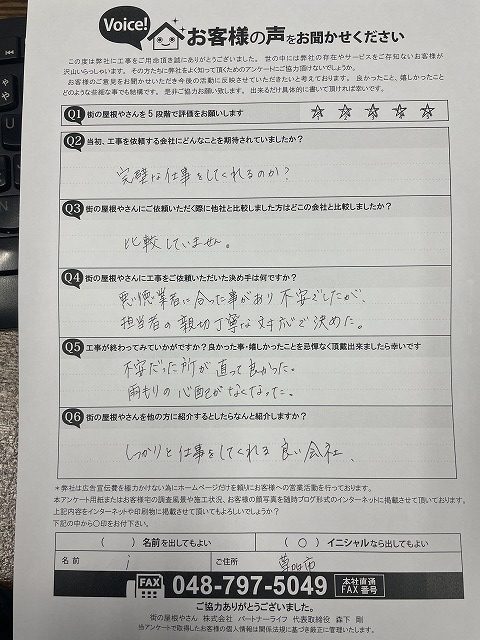 Voice! お客様の声をお聞かせください
この度は弊社に工事をご用命頂き誠にありがとうございました。世の中には弊社の存在やサービスをご存知ないお客様が
沢山いらっしゃいます。その方たちに弊社をよく知って頂くためのアンケートにご協力頂けないでしょうか。
お客様のご意見をお聞かせいただき今後の活動に反映させていただきたいと考えております。良かったこと、嬉しかったこと
どのような些細な事でも結構です。是非ご協力お願い致します。出来るだけ具体的に書いて頂ければ幸いです。
Q1 街の屋根やさんを5段階で評価をお願いします ☆ ☆ ☆ ☆ ☆
Q2 当初、工事を依頼する会社にどんなことを期待されていましたか?
完璧な仕事をしてくれるのか?
Q3 街の屋根やさんにご依頼いただく際に他社と比較しました方はどこの会社と比較しましたか?
比較していません。
Q4 街の屋根やさんに工事をご依頼いただいた決め手は何ですか?
悪徳業者に合った事があり不安でしたが、
担当者の親切丁寧な対応で決めた。
Q5 工事が終わってみていかがですか?良かった事・嬉しかったことを忌憚なく頂戴出来ましたら幸いです
不安だった所が直って良かった。
雨もりの心配がなくなった。
Q6 街の屋根やさんを他の方に紹介するとしたらなんと紹介しますか?
しっかりと仕事をしてくれる良い会社、
*弊社は広告宣伝費を極力かけない為にホームページだけを頼りにお客様への営業活動を行っております。
本アンケート用紙またはお客様宅の調査風景や施工状況、お客様の顔写真を随時ブログ形式のインターネットに掲載させて頂いております。
上記内容をインターネットや印刷物に掲載させて頂いてもよろしいでしょうか?
下記の中から〇印をお付下さい。
( ) 名前を出してもよい ( 〇 ) イニシャルなら出してもよい
名前 i ご住所 草加市
FAX 048-797-5049 本社直通 FAX番号
ご協力ありがとうございました。
街の屋根やさん 株式会社 パートナーライフ 代表取締役 森下 剛
当アンケートで取得したお客様の個人情報は関係法規に基づき厳正に管理いたします。